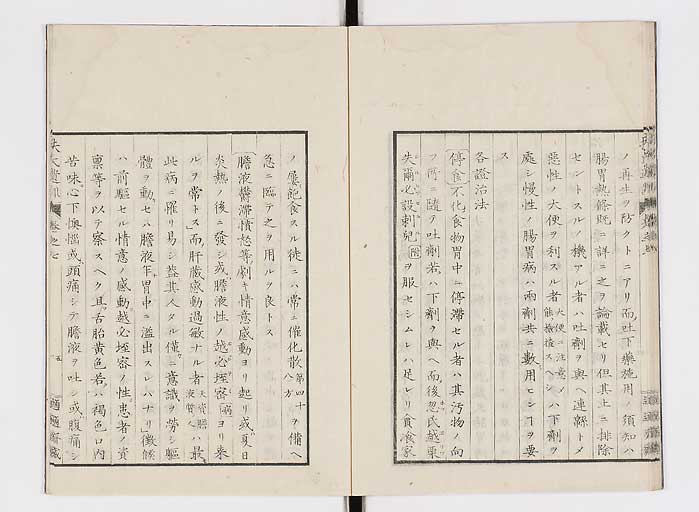 ノ再生ヲ防クトニアリ而吐下藥施用ノ須知ハ
腸胃熱條既ニ詳ニ之ヲ論載セリ但其上ニ排除
セントスルノ機アル者ハ吐劑ヲ與ヘ連緜トメ
惡性ノ大便ヲ利スル者大便ニ注意ノ能檢査スヘシハ下劑ヲ
處シ慢性ノ腸胃病ハ兩劑共ニ數用センヿヲ要
ス
各證治法
停食不化食物胃中ニ停滯セル者ハ其汚物ノ向
フ所ニ隨ヲ吐劑若ハ下劑ヲ與ヘ而後忽氏越栗
失爾必設刺兒ヲ服セシムレハ足レリ貪飡家
ノ屢飽食スル徒ニハ常ニ催化散第四十八方ヲ備ヘ
急ニ臨テ之ヲ用ルヲ良トス
膽液鬱滯憤怒等劇キ情意感動ヨリ起リ或夏日
炎熱ノ後ニ發シ或膽液性ノ越必垤密病ヨリ來
ルヲ常トス而肝臟感動過敏ナル者天資膽液質ハ最
此病ニ罹リ易シ蓋其人タル僅ニ意識ヲ勞シ軀
體ヲ動セハ膽液乍胃中ニ溢出スレハナリ徴候
ハ前驅セル情意ノ感動越必垤密ノ性患者ノ資
稟等ヲ以テ察スヘク且舌胎黃色若ハ褐色口內
苦味心下懊惱或頭痛シテ膽液ヲ吐シ或腹痛シ